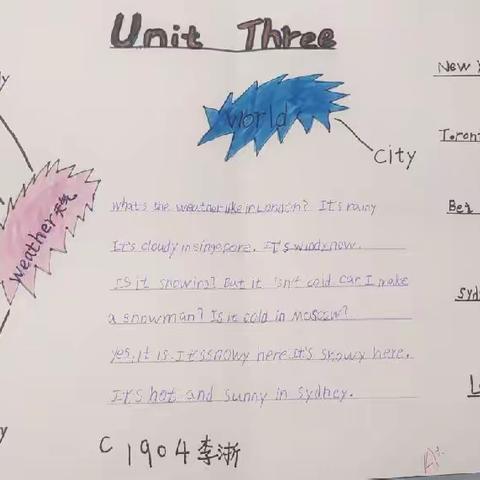 Unit Three
World
City
New Y
Toront
Ber
Syd
weather 天气
what's the weather like in London? It's rainy
It's cloudy in singapore. IT's windy now.
Is it snowing? But it isn't cold car I make
a snowman? Is it cold in Moscow?
yes, it is. It's snowy here. It's snowy here.
It's hot and sunny in sydney.
C1904 李浙
A